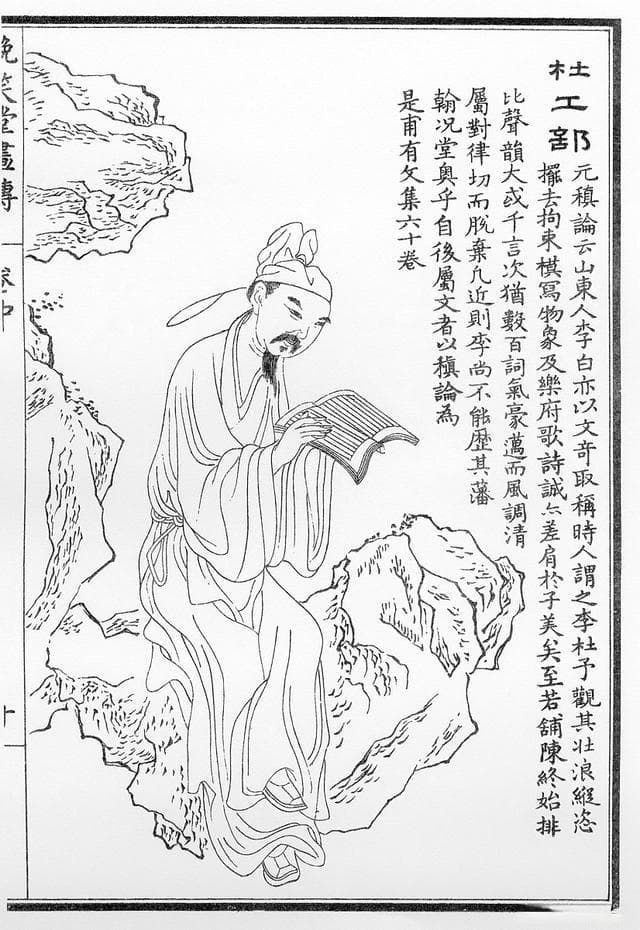 杜工部
元稹論云山東人李白亦以文竒取稱時人謂之李杜予觀其壯浪縱恣
擺去拘束模寫物象及樂府歌詩誠亦差肩於子美矣至若舖陳終始排
比聲韻大或千言次猶數百詞氣豪邁而風調清
屬對律切而脫棄凡近則李尚不能歷其藩
翰况堂奧乎自後屬文者以稹論為
是甫有文集六十卷
晚笑堂畫傳
卷中
十